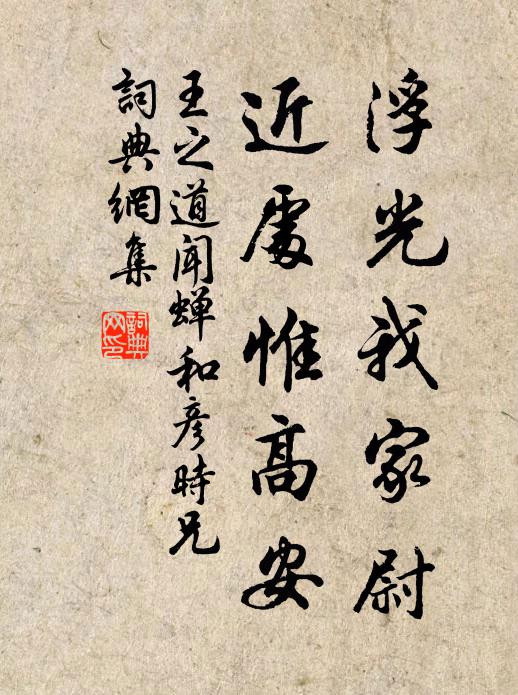 浮光我家尉
近處惟高安
王之道聞蟬和彥時兄
詞典網集
詞典網印